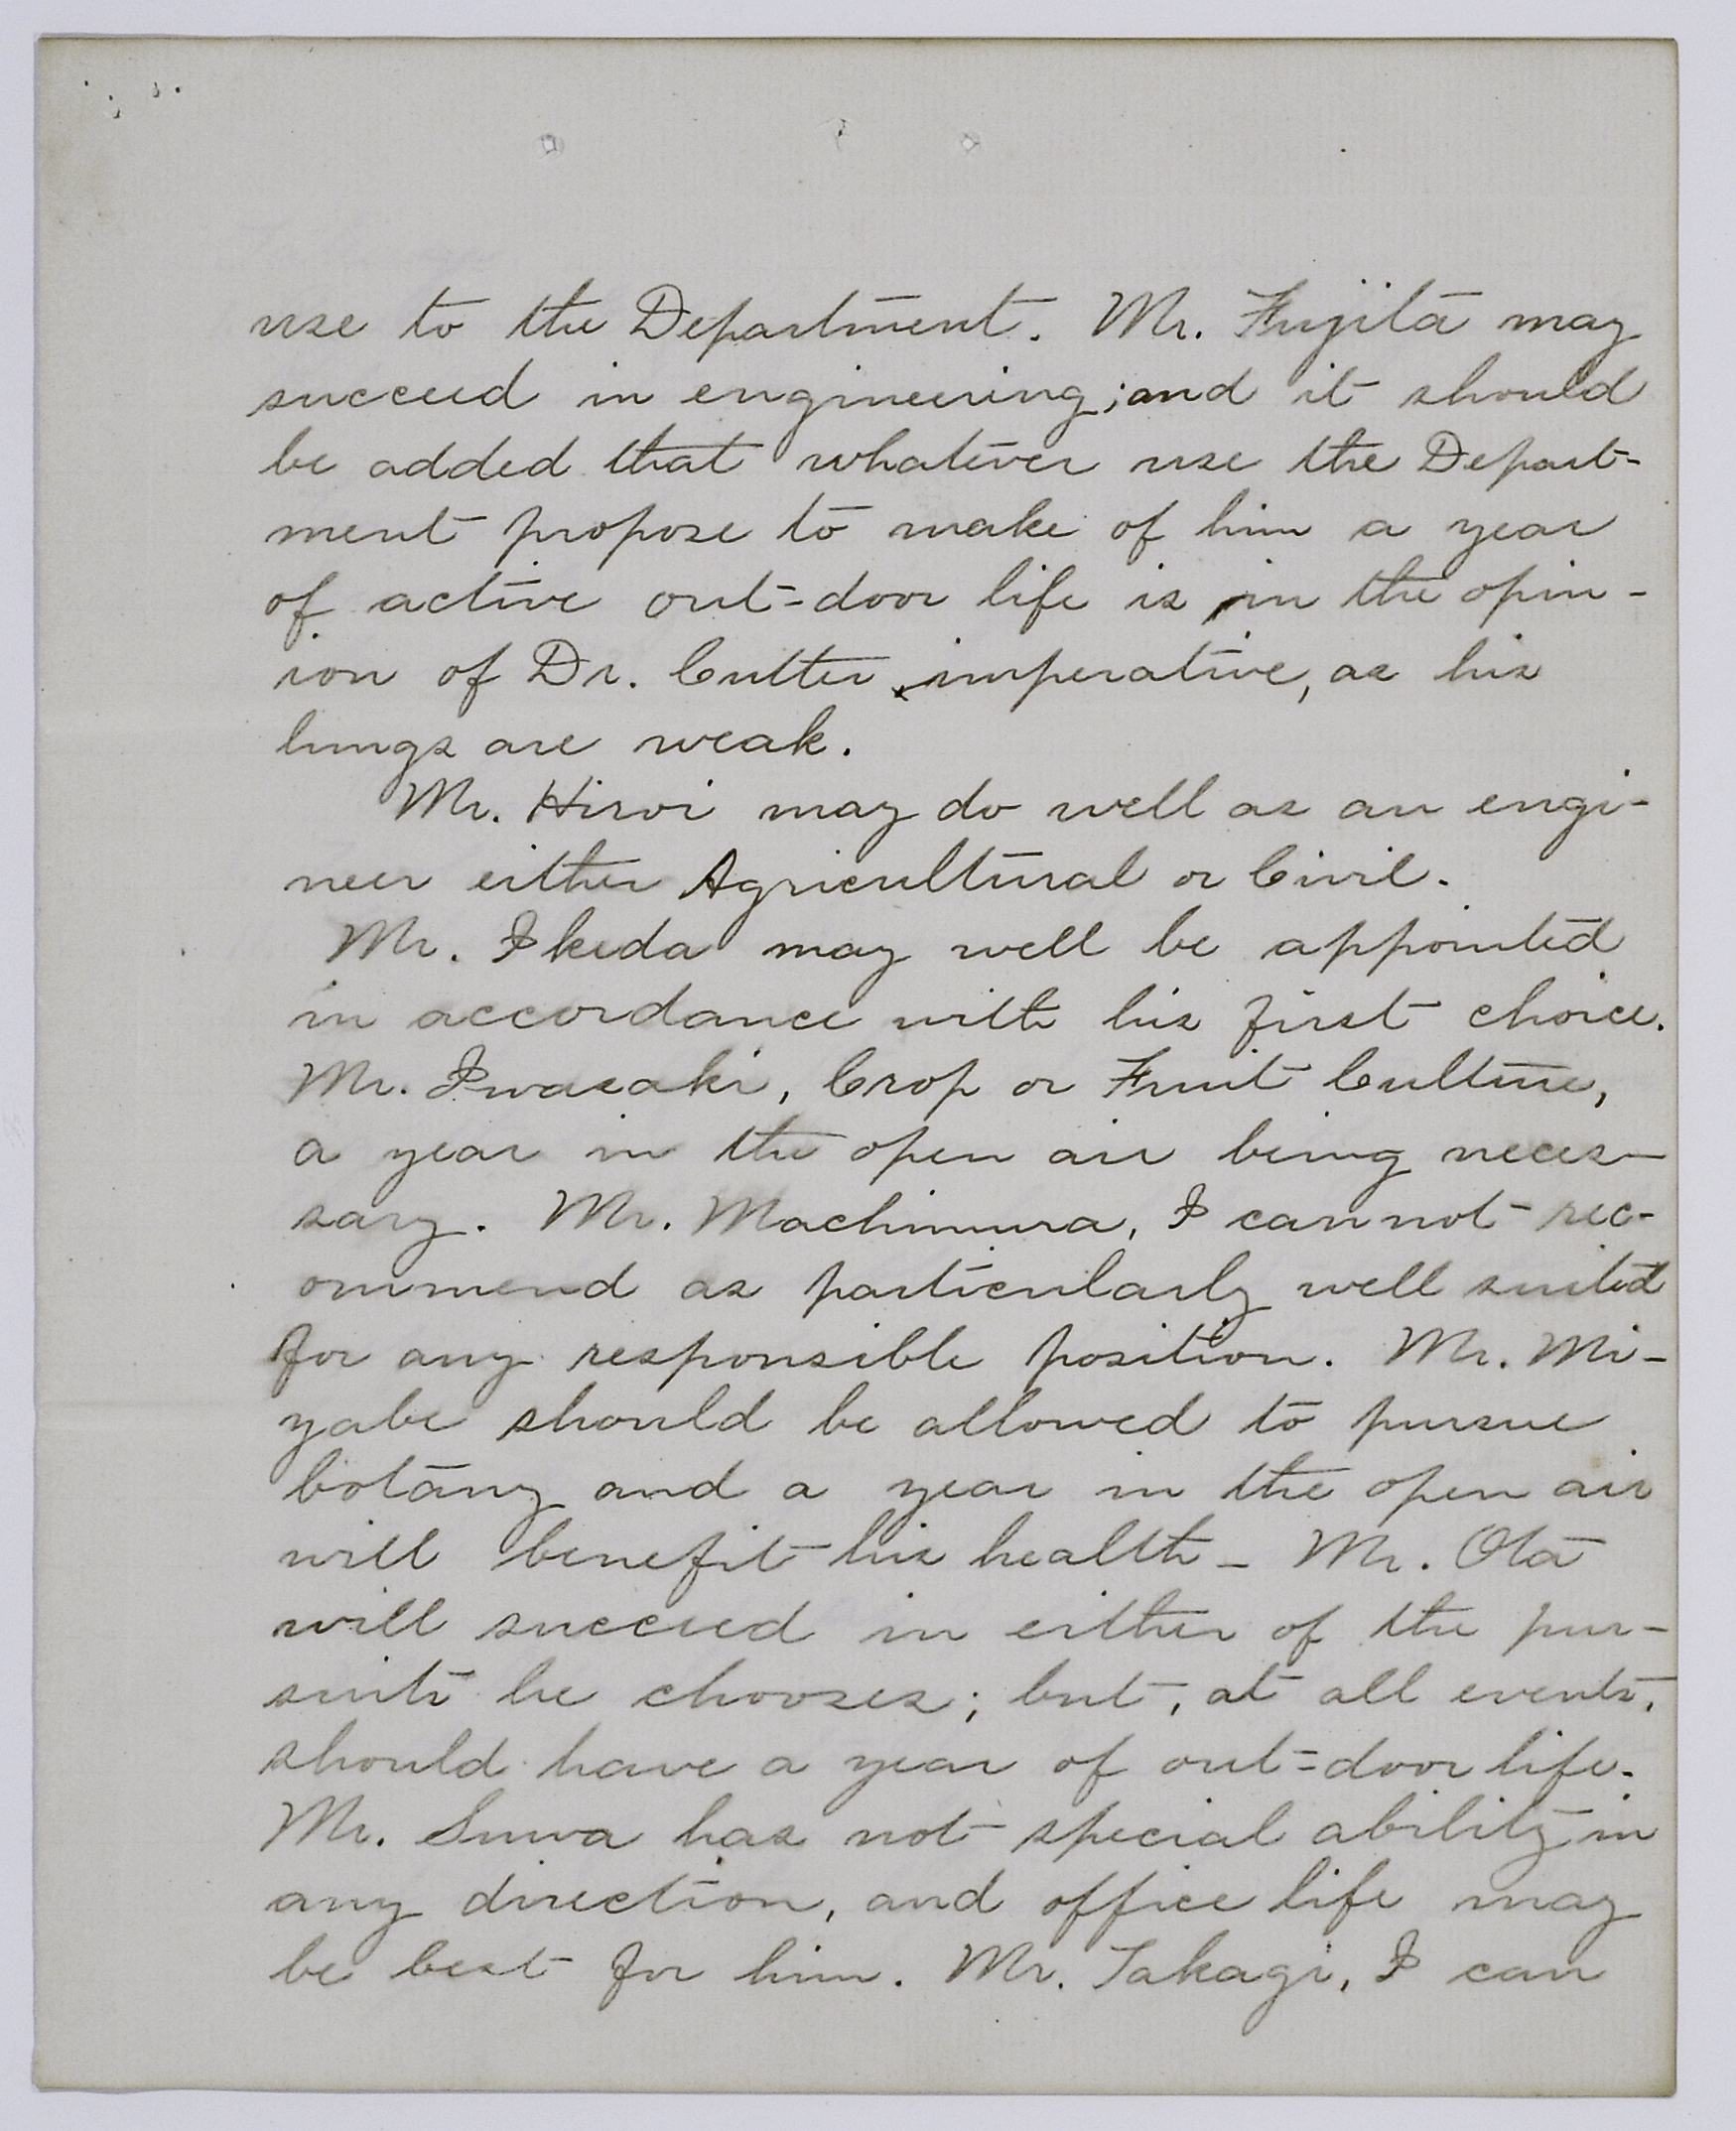 use to the Department. Mr. Fujita may
succeed in engineering; and it should
be added that whatever use the Depart-
ment propose to make of him a year
of active out-door life is in the opin-
ion of Dr. Cutter, imperative, as his
lungs are weak.
Mr. Hiroi may do well as an engi-
neer either Agricultural or Civil.
Mr. Ikeda may well be appointed
in accordance with his first choice.
Mr. Iwasaki, Crop or Fruit Culture,
a year in the open air being neces-
sary. Mr. Machimura, I cannot rec-
ommend as particularly well suited
for any responsible position. Mr. Mi-
yabe should be allowed to pursue
botany and a year in the open air
will benefit his health - Mr. Ota
will succeed in either of the pur-
suits he chooses; but, at all events,
should have a year of out-door life.
Mr. Suwa has not special ability in
any direction, and office life may
be best for him. Mr. Takagi, I can